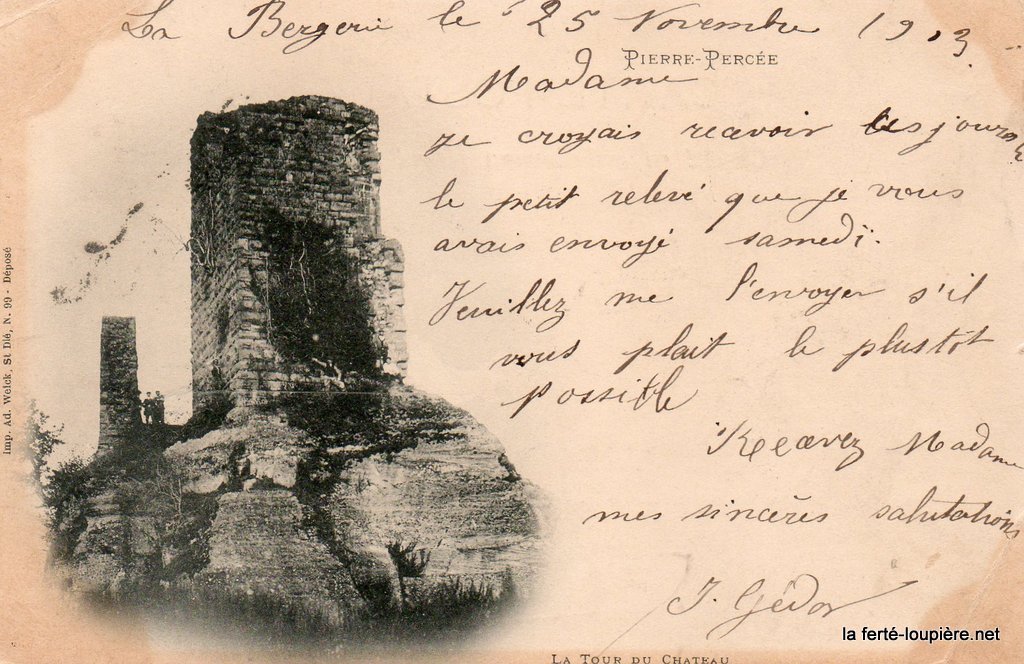 La Bergerie le 25 Novembre 1903
PIERRE-PERCÉE
Madame
je croyais recevoir ces jours
le petit relevé que je vous
avais envoyé samedi.
Veuillez me l'envoyer s'il
vous plait le plustôt
possible
Recevez Madame
mes sincères salutations
J. Gédor
Imp. Ad. Weick, St Dié, N. 99 - Déposé
LA TOUR DU CHATEAU
la ferté-loupière.net